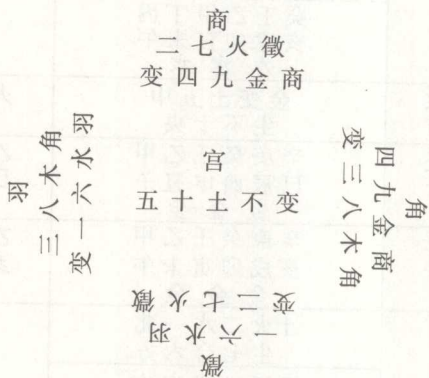 商
二七火徵
变四九金商
羽
三八木角
变一六水羽
宫
五十土不变
角
四九金商
变三八木角
徵
一六水羽
变二七火徵